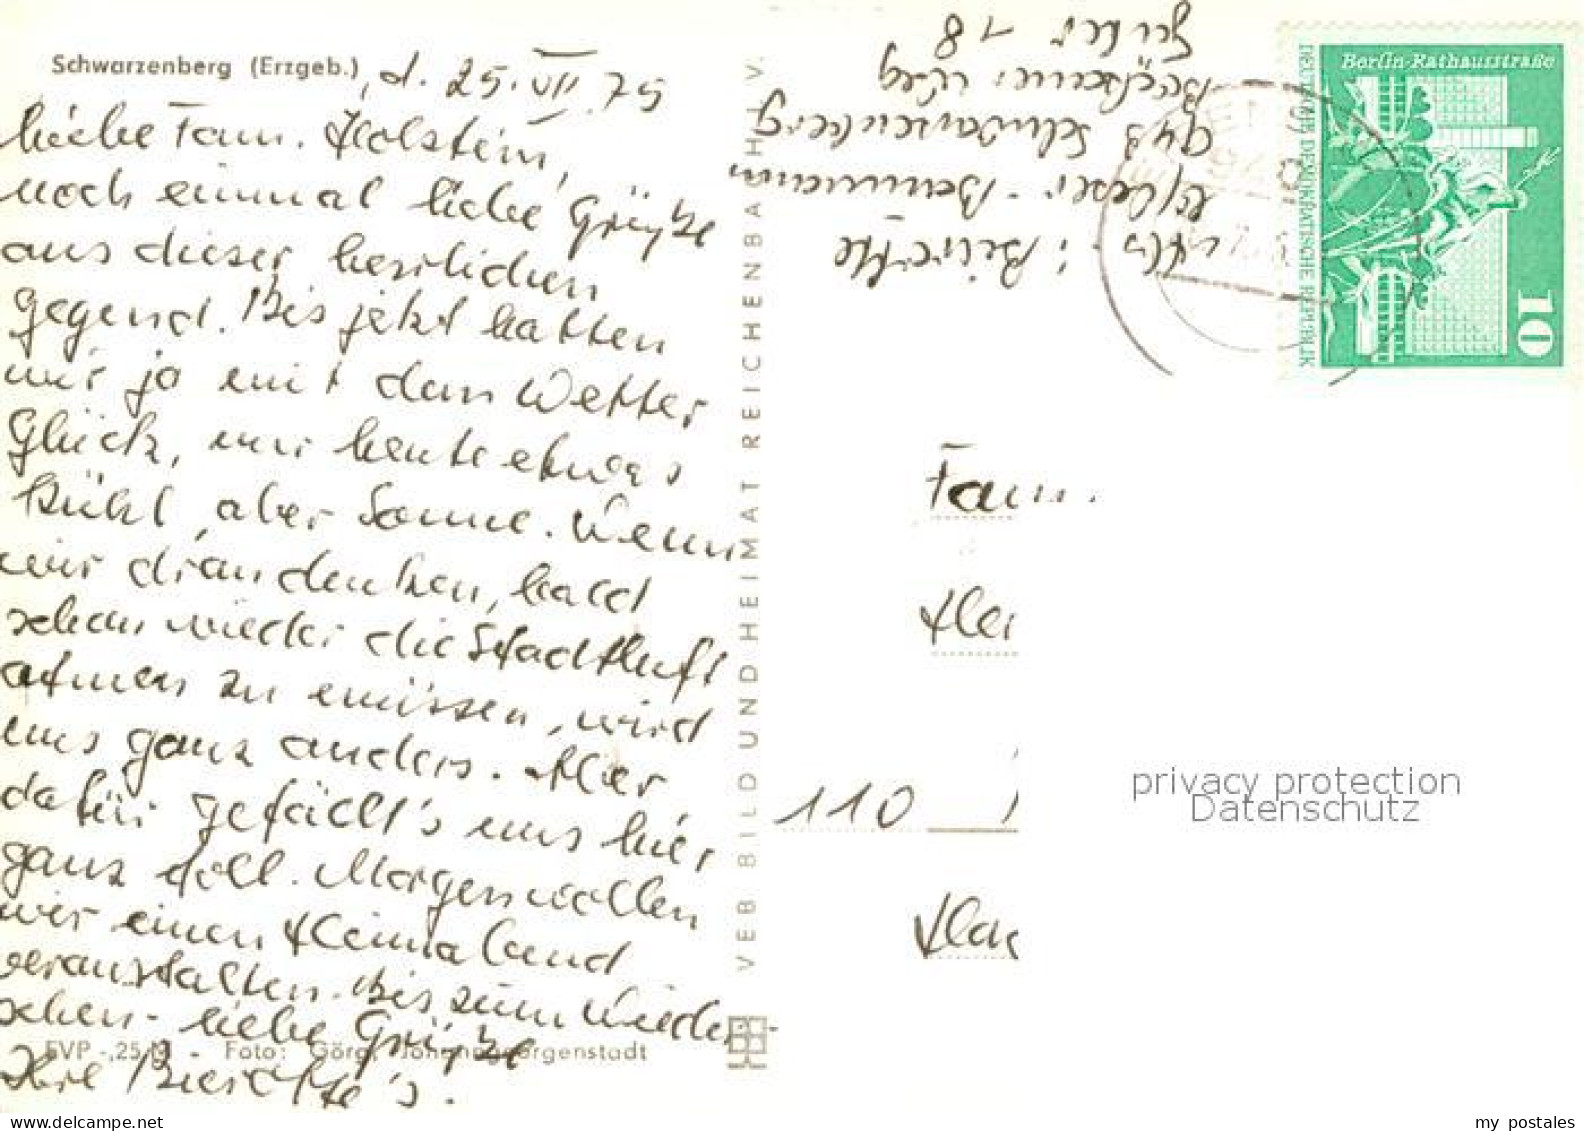 Schwarzenberg (Erzgeb.)
, d. 25. VII. 75
Liebe Fam. Holstein,
noch einmal liebe Grüße
aus dieser herrlichen
Gegend. Bis jetzt hatten
wir ja mit dem Wetter
Glück, nur heute etwas
kühl, aber Sonne. Wenn
wir dran denken, bald
schon wieder die Stadtluft
atmen zu müssen, wird
uns ganz anders. Aber
dafür gefällt's uns hier
ganz doll. Morgen wollen
wir einen Heimabend
veranstalten. Bis zum Wieder-
sehen - liebe Grüße
EVP -,25 M - Foto: Görg, Johanngeorgenstadt
Ihre
VEB BILD UND HEIMAT REICHENBACH I. V.
943 Schwarzenberg
18
Berlin-Rathausstraße
DEUTSCHE DEMOKRATISCHE REPUBLIK
10
Fam.
110
privacy protection
Datenschutz
my postales